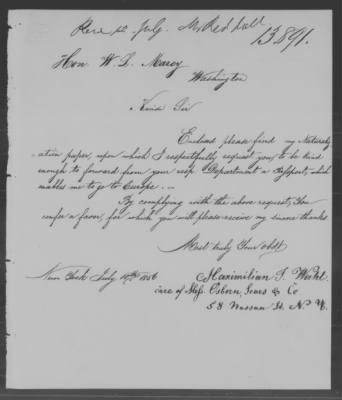 Recd 12 July. M. Reddall
13891.
Hon. W. L. Marcy
Washington
Kind Sir
Enclosed please find my Naturaliz-
ation paper, upon which I respectfully request you, to be kind
enough to forward from your resp. Department a Passport, which
enables me to go to Europe. —
By complying with the above request, You
confer a favor, for which you will please receive my sincere thanks
Most truly Your obdt
New York July 1856
Maximilian T.
care of Messr. Osborn, & Co
58 Nassau St. N. Y.